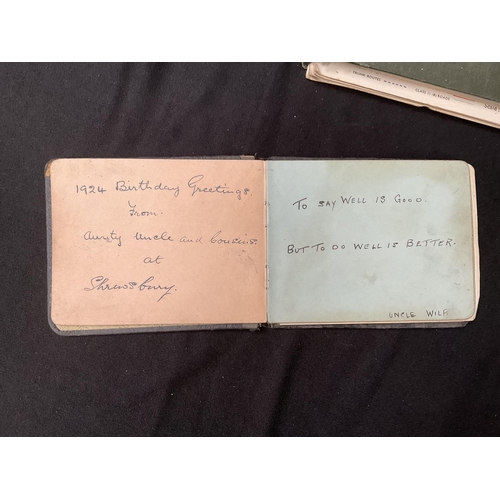 1924 Birthday Greetings
From.
Aunty Uncle and Cousins.
at
Shrewsbury.
To say Well is Good.
But to do Well is Better.
Uncle Wilf